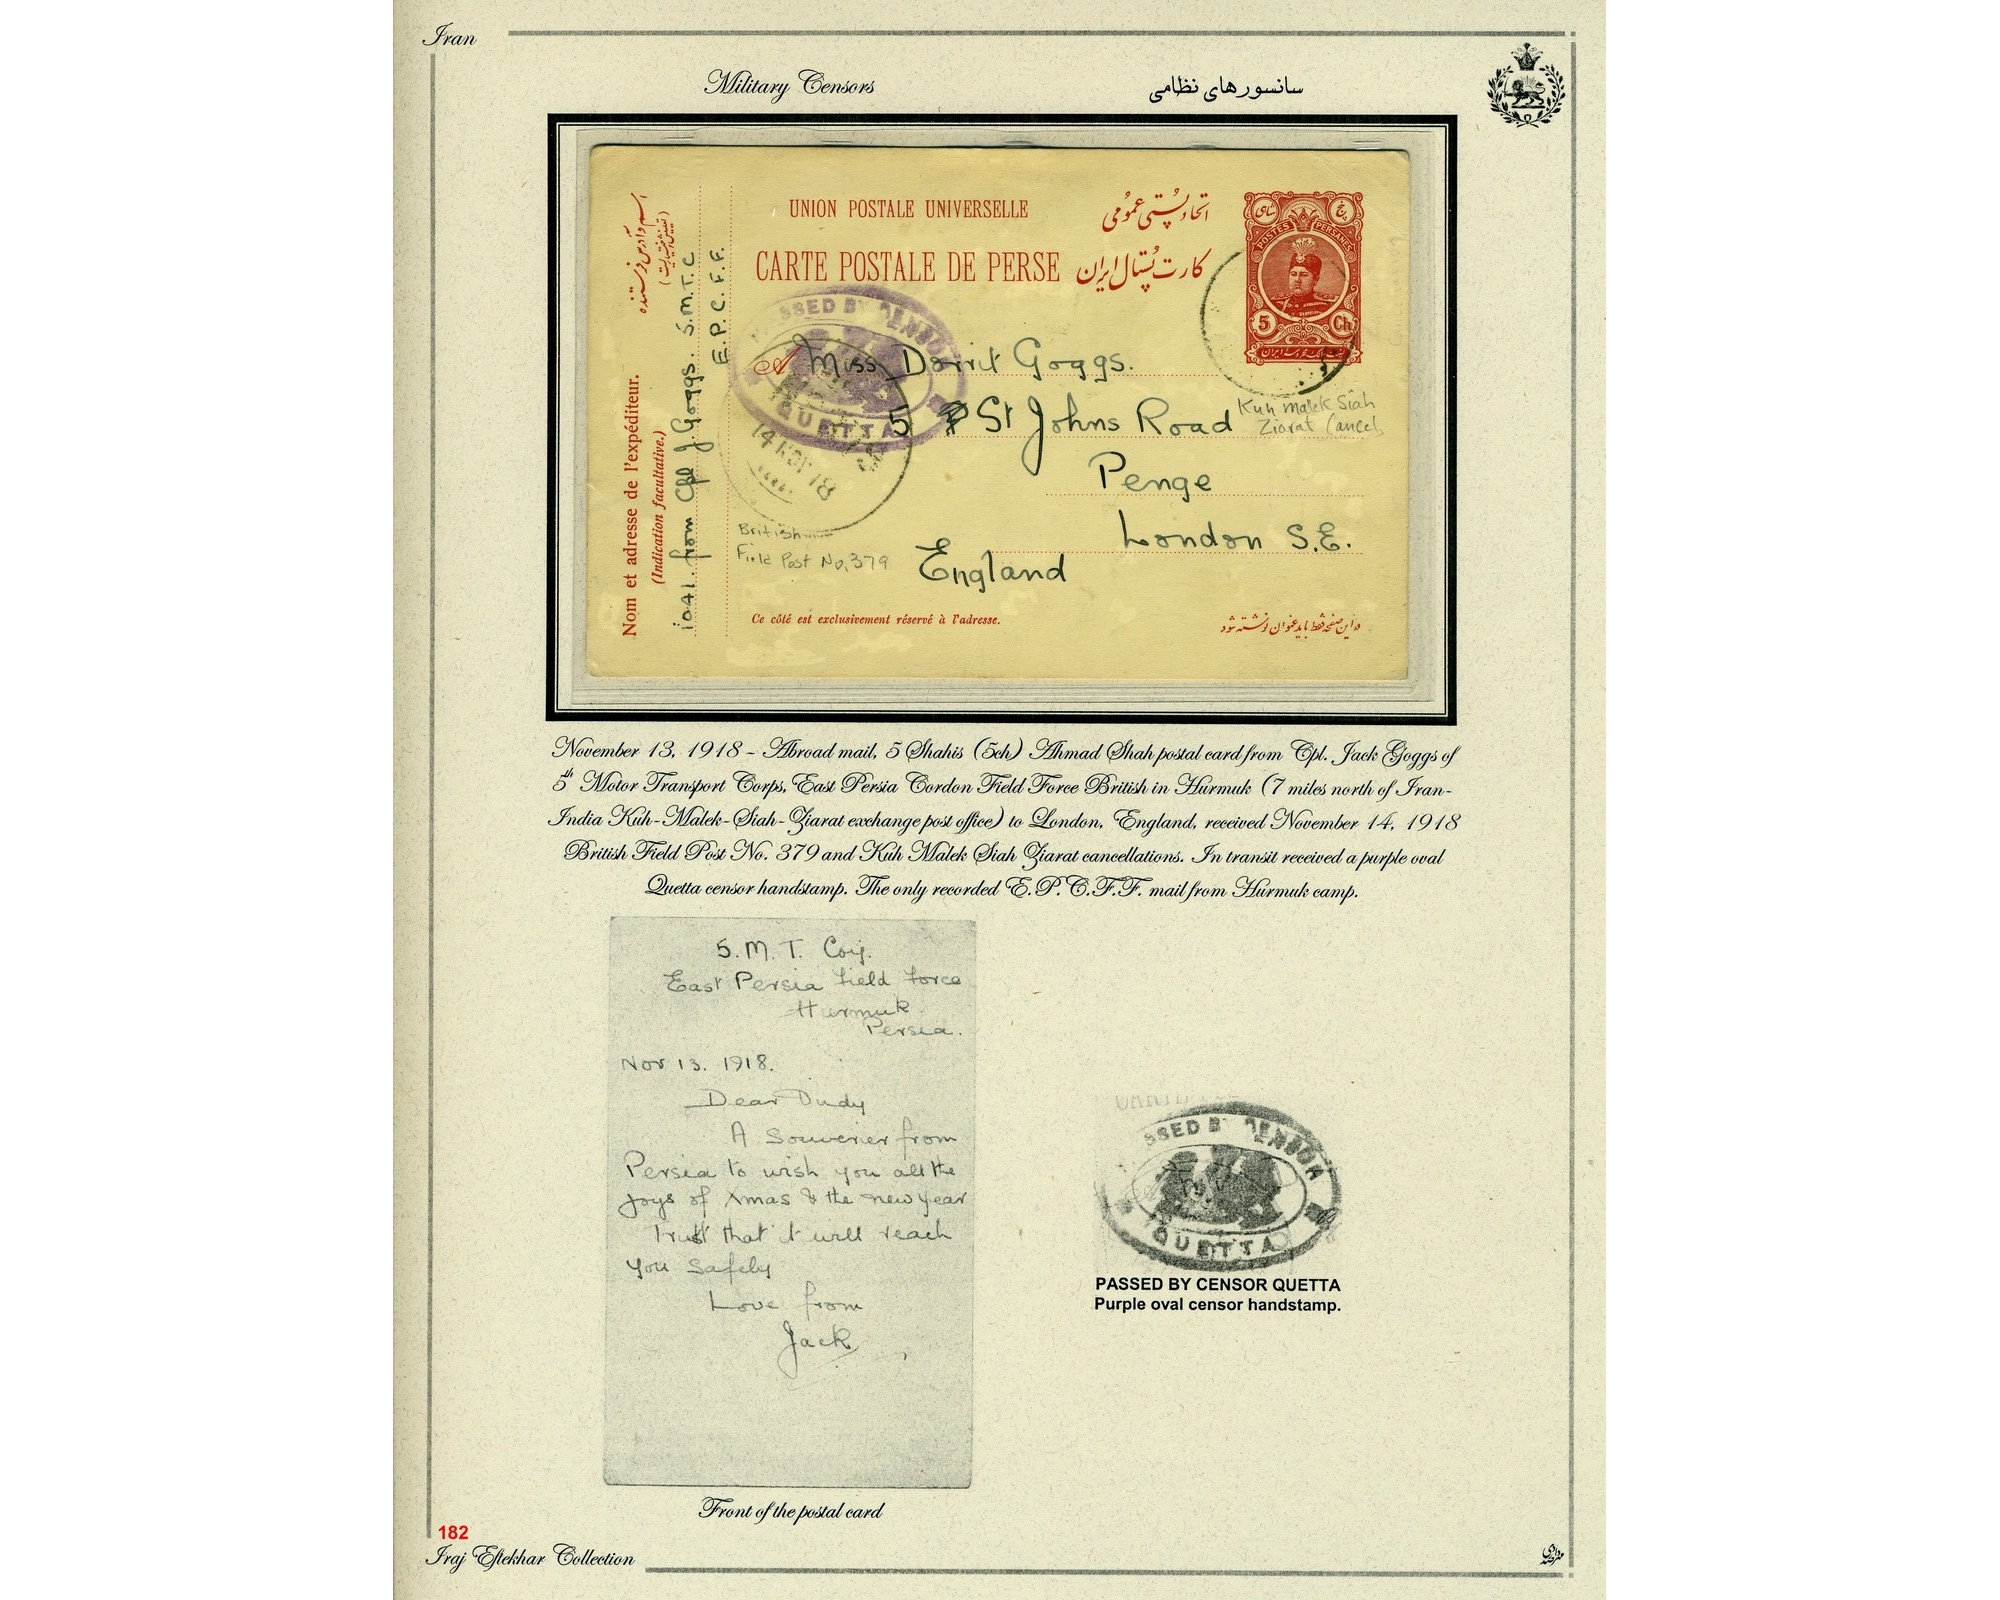 Iran
Military Censors
سانسورهای نظامی
UNION POSTALE UNIVERSELLE
اتحاد پستی عمومی
CARTE POSTALE DE PERSE
کارت پستال ایران
POSTES PERSANES
5 Ch
Nom et adresse de l'expéditeur.
(Indication facultative.)
1041 from Cpl J Goggs. 5.M.T.C
E.P.C.F.F.
PASSED BY CENSOR
QUETTA
14 NOV 18
A Miss Dorrit Goggs.
5 St Johns Road
Penge
London S.E.
England
Kuh Malek Siah
Ziarat Cancel
British
Field Post No. 379
Ce côté est exclusivement réservé à l'adresse.
در این صفحه فقط باید عنوان نوشته شود
November 13, 1918 - Abroad mail, 5 Shahis (5ch) Ahmad Shah postal card from Cpl. Jack Goggs of
5th Motor Transport Corps, East Persia Cordon Field Force British in Hurmuk (7 miles north of Iran-
India Kuh-Malek-Siah-Ziarat exchange post office) to London, England, received November 14, 1918
British Field Post No. 379 and Kuh Malek Siah Ziarat cancellations. In transit received a purple oval
Quetta censor handstamp. The only recorded E.P.C.F.F. mail from Hurmuk camp.
5. M. T. Coy.
East Persia Field Force
Hurmuk
Persia.
Nov 13. 1918.
Dear Dudy
A Souvenier from
Persia to wish you all the
joys of Xmas & the new year
Trust that it will reach
you safely
Love from
Jack
SSED B CENSOR
QUETTA
PASSED BY CENSOR QUETTA
Purple oval censor handstamp.
Front of the postal card
182
Iraj Eftekhar Collection